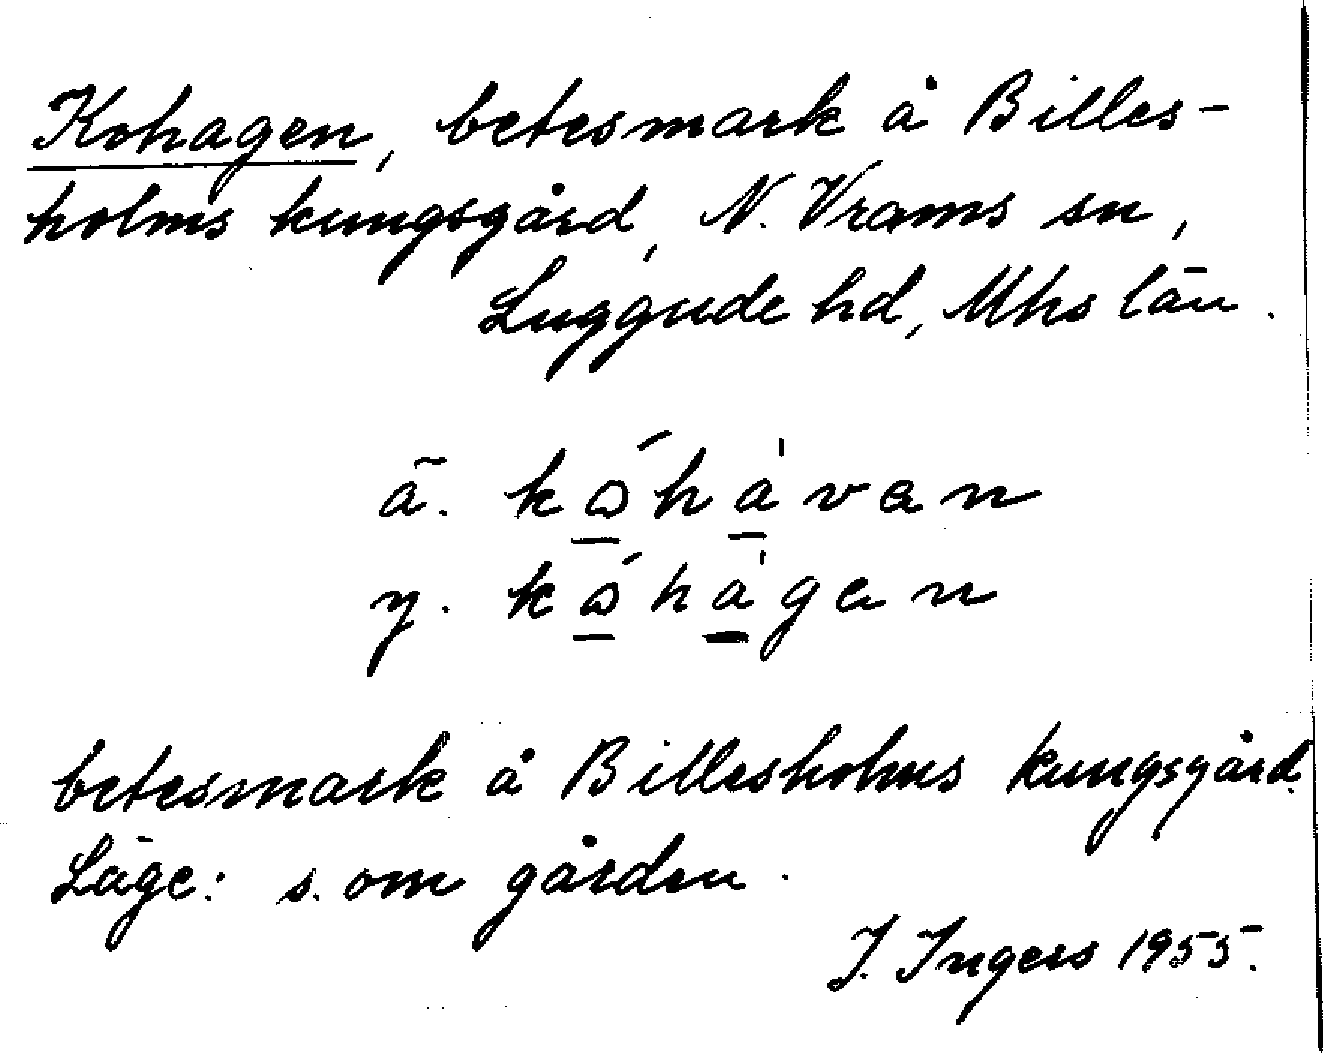 Kohagen, betesmark å Billes-
holms kungsgård, N. Vrams sn,
Luggude hd, Mhs län.
ä. kóhàvan
y. kóhàgen
betesmark å Billesholms kungsgård.
Läge: s. om gården.
I. Ingers 1955.